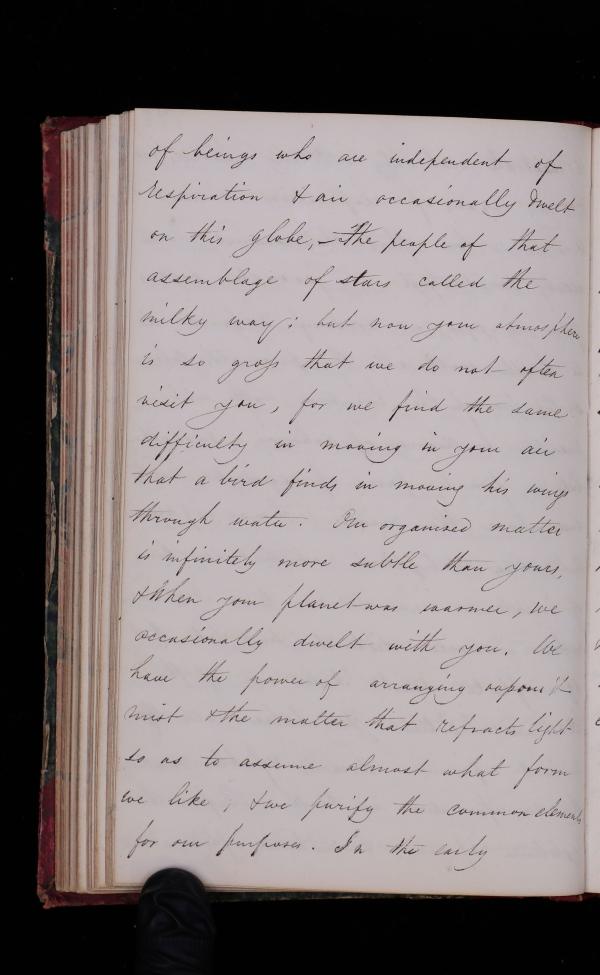 of beings who are independent of
respiration & air occasionally dwelt
on this globe, – The people of that
assemblage of stars called the
milky way; but now your atmosphere
is so gross that we do not often
visit you, for we find the same
difficulty in moving in your air
that a bird finds in moving his wings
through water. Our organised matter
is infinitely more subtle than yours,
& when your planet was warmer, we
occasionally dwelt with you. We
have the power of arranging
mist & the matter that refracts light
so as to assume almost what form
we like, & we purify the common elements
for our purposes. In the early